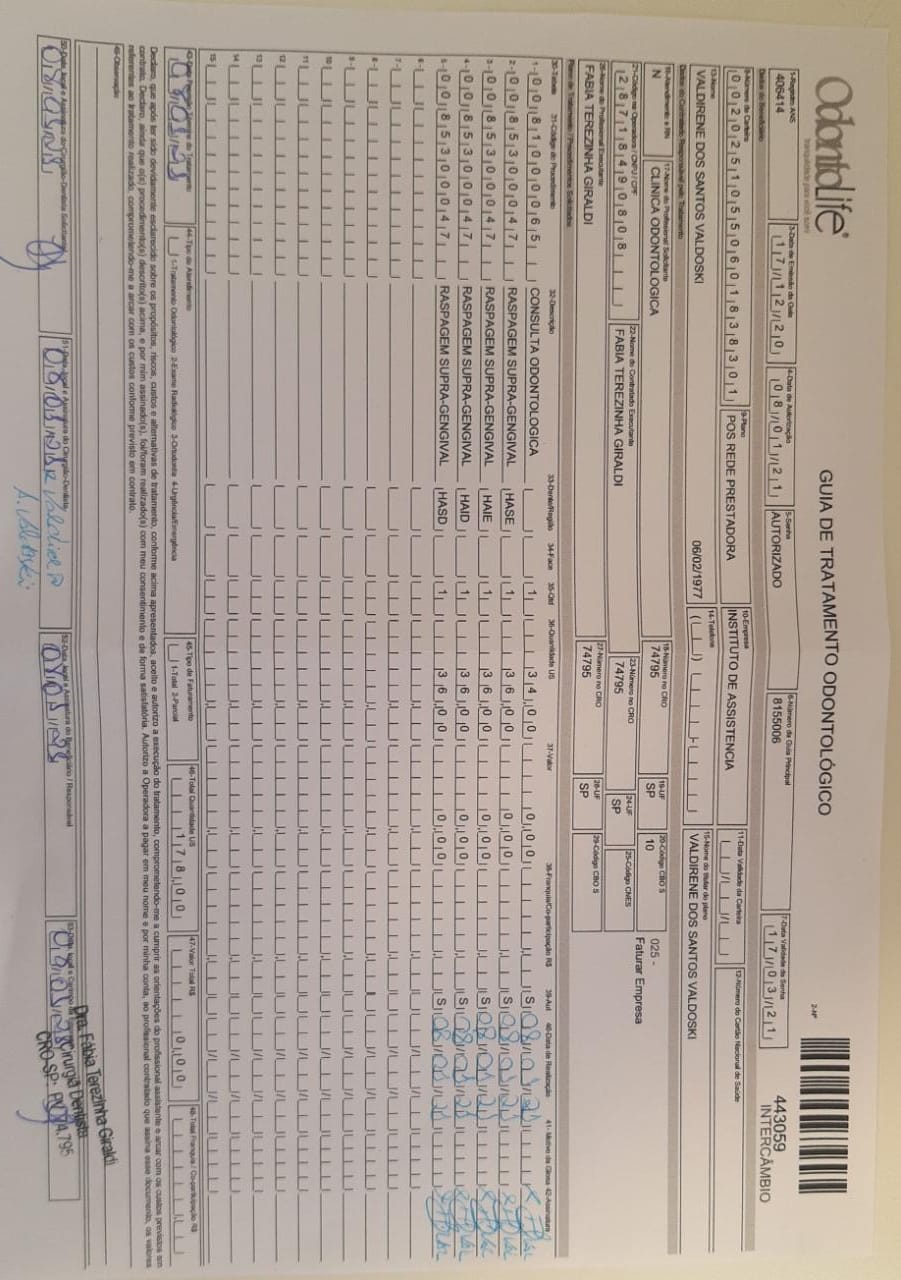 OdontoLife®
tranquilidade para você sorrir
GUIA DE TRATAMENTO ODONTOLÓGICO
2-Nº
443059
INTERCÂMBIO
1-Registro ANS
406414
3-Data de Emissão da Guia
17/12/20
4-Data de Autorização
08/01/21
5-Senha
AUTORIZADO
6-Número da Guia Principal
8155006
7-Data Validade da Senha
17/03/21
Dados do Beneficiário
8-Número da Carteira
00202510550601838301
9-Plano
POS REDE PRESTADORA
10-Empresa
INSTITUTO DE ASSISTENCIA
11-Data Validade da Carteira
12-Número do Cartão Nacional de Saúde
13-Nome
VALDIRENE DOS SANTOS VALDOSKI
06/02/1977
14-Telefone
15-Nome do titular do plano
VALDIRENE DOS SANTOS VALDOSKI
Dados do Contratado Responsável pelo Tratamento
16-Atendimento a RN
N
17-Nome do Profissional Solicitante
CLINICA ODONTOLOGICA
18-Número no CRO
74795
19-UF
SP
20-Código CBO S
10
025 -
Faturar Empresa
21-Código na Operadora / CNPJ / CPF
28718490808
22-Nome do Contratado Executante
FABIA TEREZINHA GIRALDI
23-Número no CRO
74795
24-UF
SP
25-Código CNES
26-Nome do Profissional Executante
FABIA TEREZINHA GIRALDI
27-Número no CRO
74795
28-UF
SP
29-Código CBO S
Plano de Tratamento / Procedimentos Solicitados
30-Tabela 31-Código do Procedimento 32-Descrição 33-Dente/Região 34-Face 35-Qtd 36-Quantidade US 37-Valor 38-Franquia/Co-participação R$ 39-Aut 40-Data de Realização 41- Motivo da Glosa 42-Assinatura
1- 00 81000065 CONSULTA ODONTOLOGICA 1 34,00 0,00 S
2- 00 85300047 RASPAGEM SUPRA-GENGIVAL HASE 1 36,00 0,00 S
3- 00 85300047 RASPAGEM SUPRA-GENGIVAL HAIE 1 36,00 0,00 S
4- 00 85300047 RASPAGEM SUPRA-GENGIVAL HAID 1 36,00 0,00 S
5- 00 85300047 RASPAGEM SUPRA-GENGIVAL HASD 1 36,00 0,00 S
6-
7-
8-
9-
10-
11-
12-
13-
14-
15-
44-Tipo de Atendimento
1-Tratamento Odontológico 2-Exame Radiológico 3-Ortodontia 4-Urgência/Emergência
45-Tipo de Faturamento
1-Total 2-Parcial
46-Total Quantidade US
178,00
47-Valor Total R$
0,00
48-Total Franquia / Co-participação R$
Declaro, que após ter sido devidamente esclarecido sobre os propósitos, riscos, custos e alternativas de tratamento, conforme acima apresentados, aceito e autorizo a execução do tratamento, comprometendo-me a cumprir as orientações do profissional assistente e arcar com os custos previstos em
contrato. Declaro, ainda que o(s) procedimento(s) descrito(s) acima, e por mim assinado(s), foi/foram realizado(s) com meu consentimento e de forma satisfatória. Autorizo a Operadora a pagar em meu nome e por minha conta, ao profissional contratado que assina esse documento, os valores
referentes ao tratamento realizado, comprometendo-me a arcar com os custos conforme previsto em contrato.
49-Observação
Dra. Fabia Terezinha Giraldi
Cirurgiã Dentista